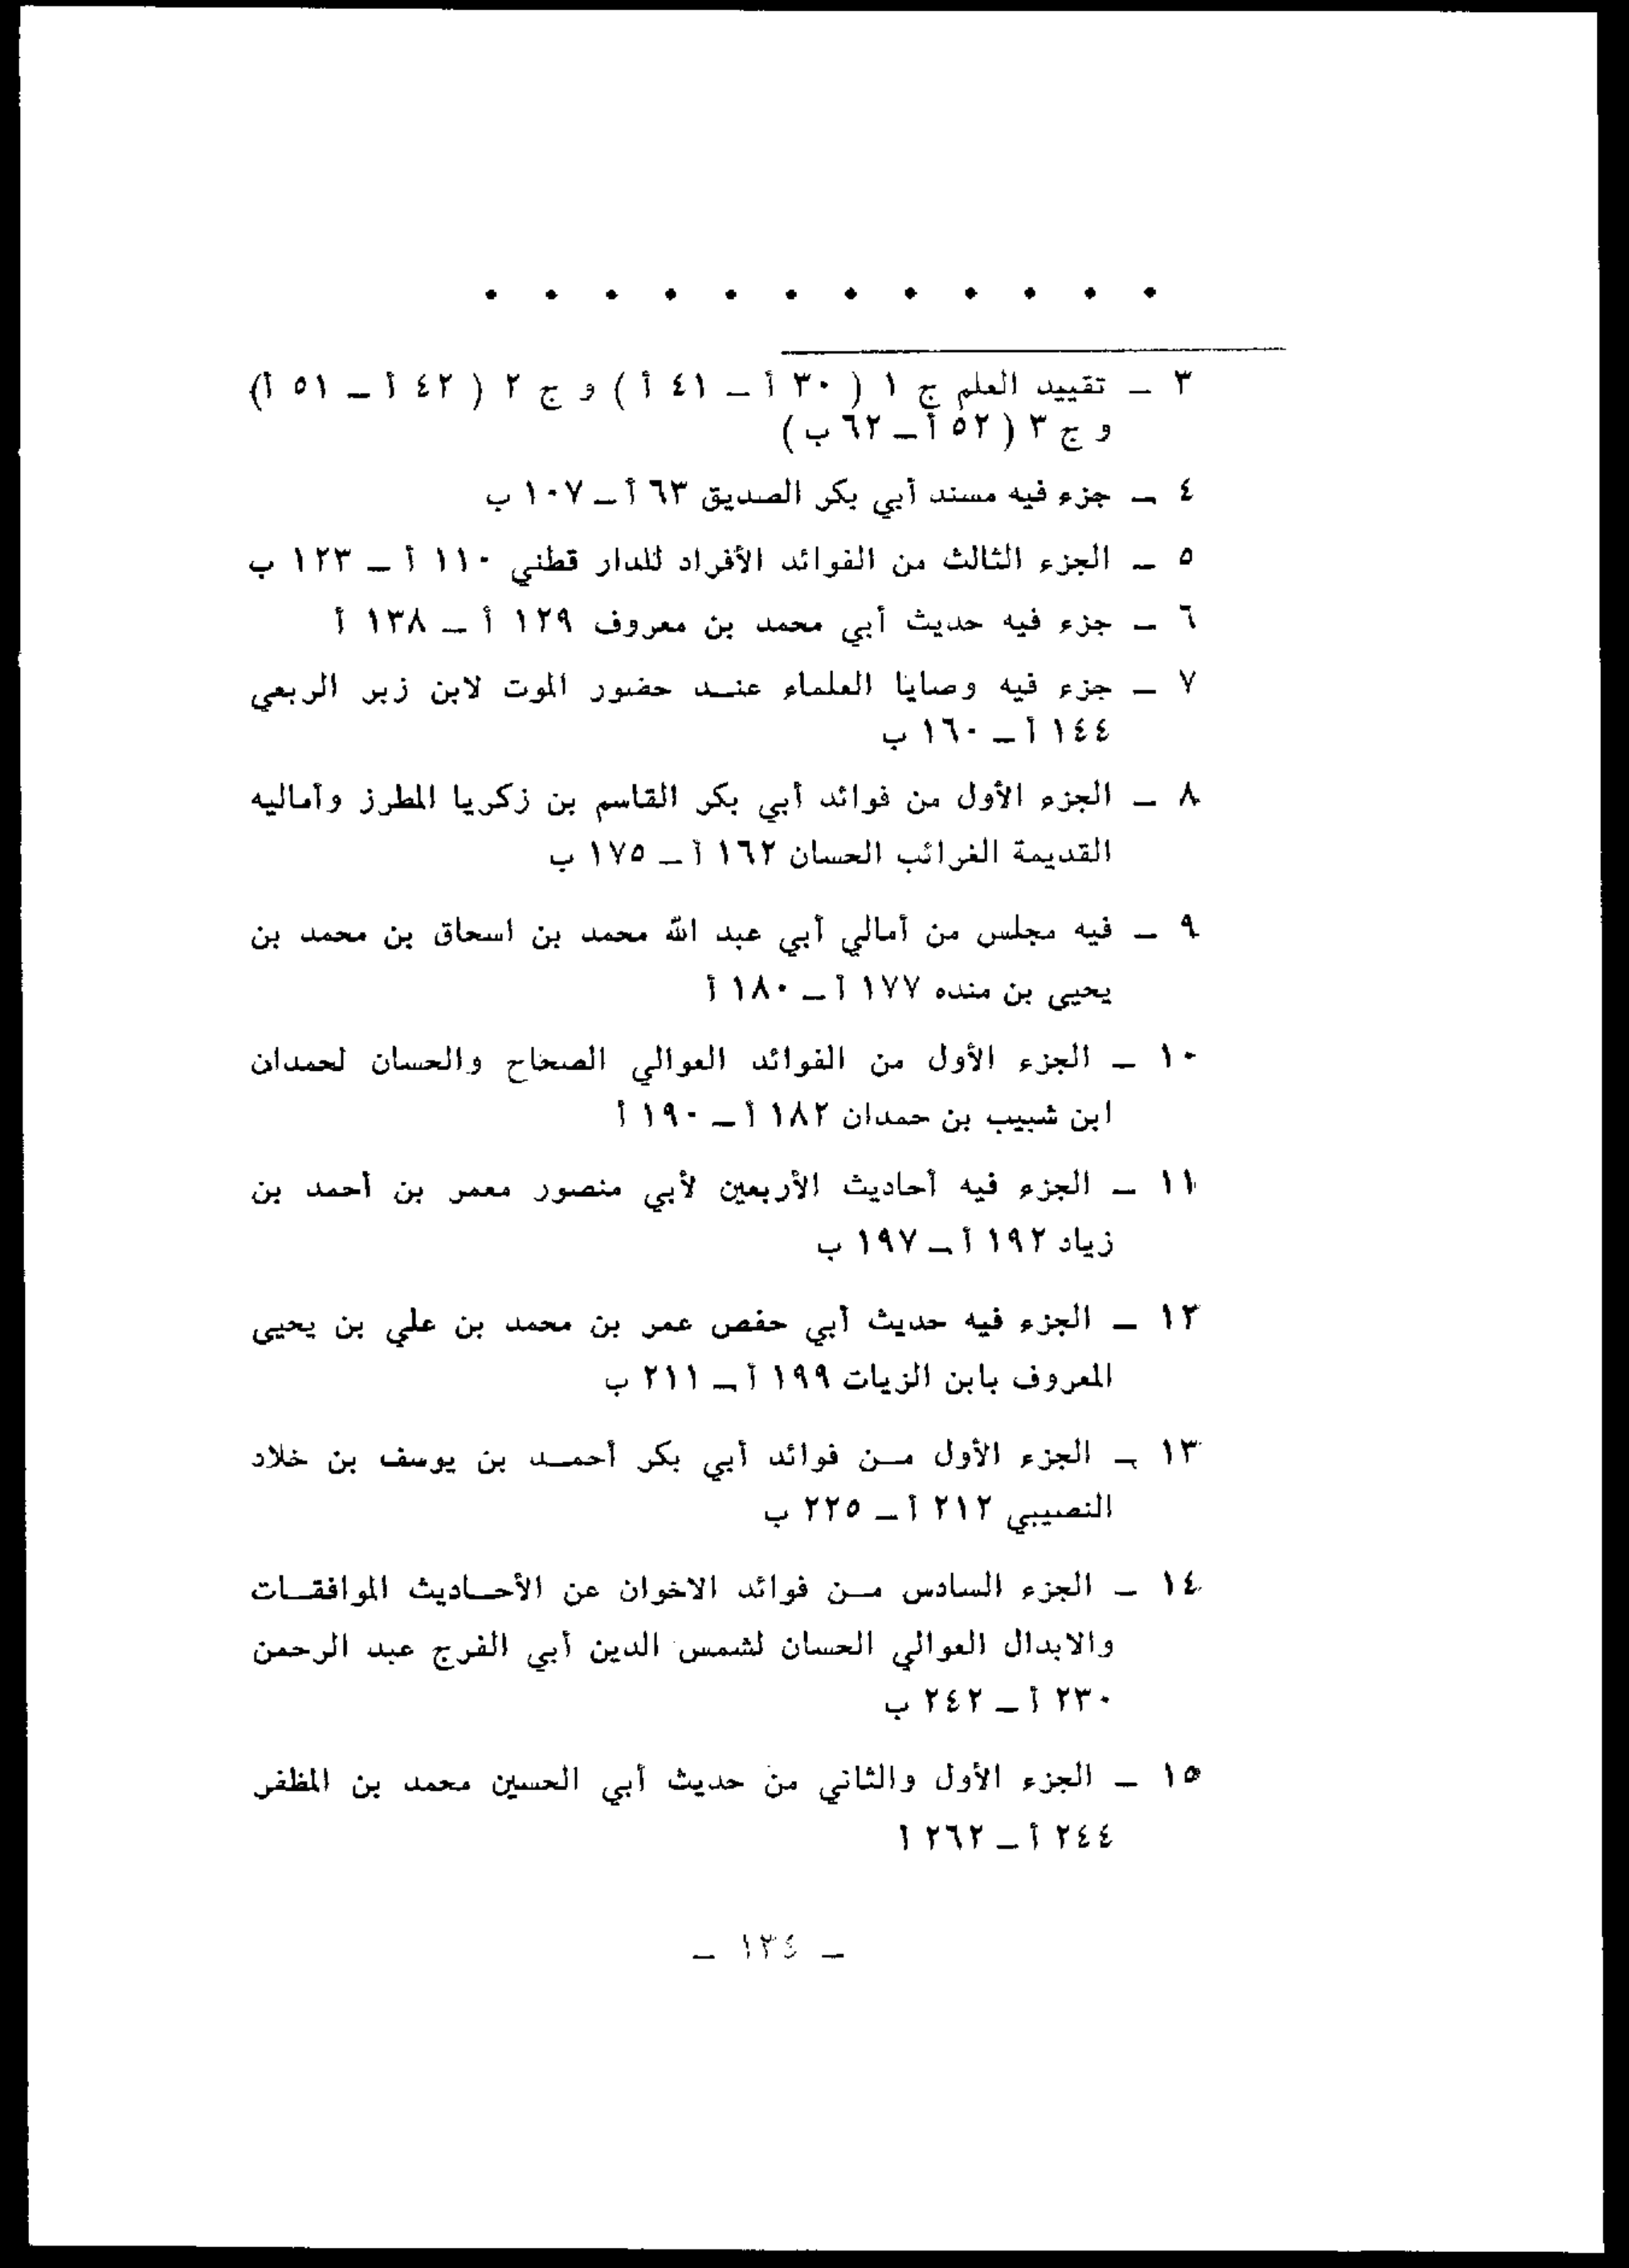 . . . . . . . . . . . .
٣ ــ تقييد العلم ج ١ ( ٣٠ أ ــ ٤١ أ ) و ج ٢ ( ٤٢ أ ــ ٥١ أ)
و ج ٣ ( ٥٢ أ ــ ٦٢ ب )
٤ ــ جزء فيه مسند أبي بكر الصديق ٦٣ أ ــ ١٠٧ ب
٥ ــ الجزء الثالث من الفوائد الأفراد للدار قطني ١١٠ أ ــ ١٢٣ ب
٦ ــ جزء فيه حديث أبي محمد بن معروف ١٢٩ أ ــ ١٣٨ أ
٧ ــ جزء فيه وصايا العلماء عنــد حضور الموت لابن زبر الربعي
١٤٤ أ ــ ١٦٠ ب
٨ ــ الجزء الأول من فوائد أبي بكر القاسم بن زكريا المطرز وأماليه
القديمة الغرائب الحسان ١٦٢ أ ــ ١٧٥ ب
٩ ــ فيه مجلس من أمالي أبي عبد الله محمد بن اسحاق بن محمد بن
يحيى بن منده ١٧٧ أ ــ ١٨٠ أ
١٠ ــ الجزء الأول من الفوائد العوالي الصحاح والحسان لحمدان
ابن شبيب بن حمدان ١٨٢ أ ــ ١٩٠ أ
١١ ــ الجزء فيه أحاديث الأربعين لأبي منصور معمر بن أحمد بن
زياد ١٩٢ أ ــ ١٩٧ ب
١٢ ــ الجزء فيه حديث أبي حفص عمر بن محمد بن علي بن يحيى
المعروف بابن الزيات ١٩٩ أ ــ ٢١١ ب
١٣ ــ الجزء الأول مــن فوائد أبي بكر أحمــد بن يوسف بن خلاد
النصيبي ٢١٢ أ ــ ٢٢٥ ب
١٤ ــ الجزء السادس مــن فوائد الاخوان عن الأحــاديث الموافقــات
والابدال العوالي الحسان لشمس الدين أبي الفرج عبد الرحمن
٢٣٠ أ ــ ٢٤٢ ب
١٥ ــ الجزء الأول والثاني من حديث أبي الحسين محمد بن المظفر
٢٤٤ أ ــ ٢٦٢ ا
ــ ١٣٤ ــ